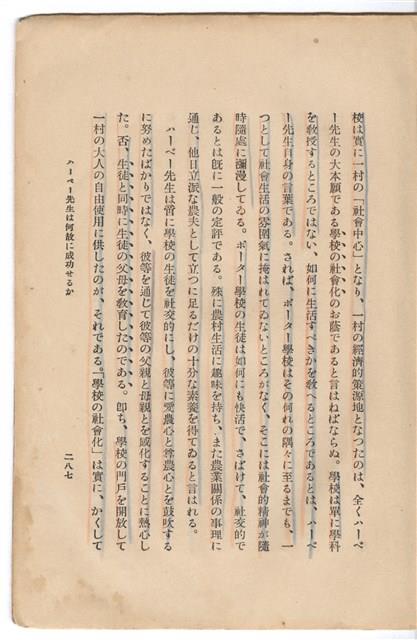 校は實に一村の「社會中心」となり、一村の經濟的策源地となつたのは、全くハーベ
ー先生の大本願である學校の社會化のお蔭であると言はねばならぬ。學校は單に學科
を敎授するところではない、如何に生活すべきかを敎へるところであるとは、ハーベ
ー先生自身の言葉である。されば、ポーター學校はその何れの隅々に至るまでも、一
つとして社會生活の雰圍氣に掩はれてゐないところがなく、そこには社會的精神が隨
時隨處に瀰漫してゐる。ポーター學校の生徒は如何にも快活で、さばけて、社交的で
あるとは旣に一般の定評である。殊に農村生活に趣味を持ち、また農業關係の事理に
通じ、他日立派な農夫として立つに足るだけの十分な素養を得てゐると言はれる。
ハーベー先生は啻に學校の生徒を社交的にし、彼等に愛農心と尊農心とを鼓吹する
に努めたばかりではなく、彼等を通じて彼等の父親と母親とを感化することに熱心し
た。否、生徒と同時に生徒の父母を敎育したのである。卽ち、學校の門戶を開放して
一村の大人の自由使用に供したのが、それである。「學校の社會化」は實に、かくして
ハーベー先生は何故に成功せるか
二八七